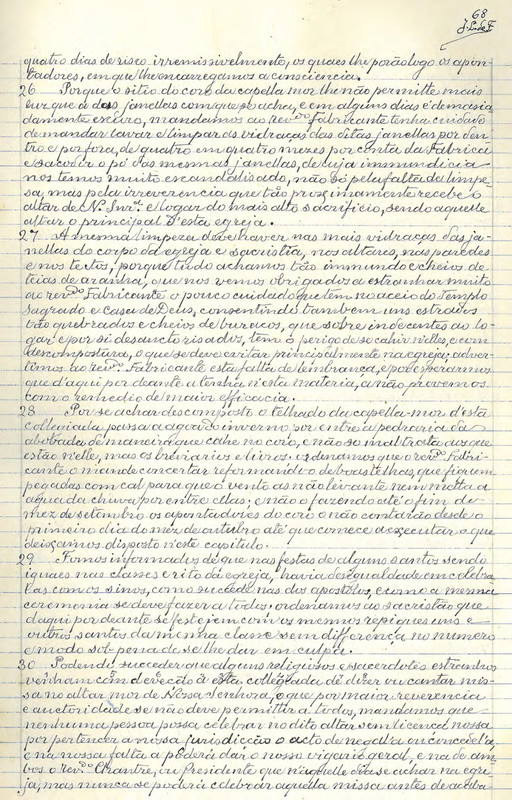 68
quatro dias de risco irremissivelmente, os quaes lhe porão logo os apon-
tadores, em que lhe encarregamos a consciencia.
26 Porque o sitio do coro da capella mor lhe não permitte mais
luz que a das janellas com que se acha, e em alguns dias é demasia
damente escuro, mandamos ao revdo. fabricante tenha cuidado
de mandar lavar e limpar as vidraças das ditas janellas por den-
tro e por fora, de quatro em quatro mezes por conta da Fabrica
e sacodir o pó das mesmas janellas, de cuja immundicia
nos temos muito escandalisado, não só pela falta da limpe-
sa, mas pela irreverencia que tão proximamente recebe o
altar de N. Snra. e logar do mais alto sacrificio, sendo aquelle
altar o principal d'esta egreja.
27 A mesma limpeza deve haver nas mais vidraças das ja-
nellas do corpo da egreja e sacristia, nos altares, nas paredes
e nos tectos, porque tudo achamos tão immundo e cheios de
teias de aranha, que nos vemos obrigados a estranhar muito
ao revdo. Fabricante o pouco cuidado que tem no aceio do Templo
Sagrado e Casa de Deus, consentindo tambem uns estrados
tão quebrados e cheios de buracos, que sobre indecentes ao lo-
gar e por si desauctorisados, tem o perigo de se cahir n'elles, e com
descompostura, o que se deve evitar principalmente na egreja; adver-
timos ao revdo. Fabricante esta falta de lembrança, e por esperarmos
que d'aqui por deante a tenha n'esta materia, a não provemos
com o remedio de maior efficacia.
28 Por se achar descomposto o telhado da capella-mor d'esta
collegiada passa a agua do inverno por entre a pedraria da
abobada de maneira que cahe no coro, e não só maltrata aos que
estão n'elle, mas os breviarios e livros: ordenamos que o revdo. Fabri-
cante o mande concertar reformando-o de boas telhas, que fiquem
pegadas com cal para que o vento as não levante nem metta a
agua da chuva por entre ellas; e não o fazendo até o fim de
mez de setembro os apontadores do coro o não contarão desde o
primeiro dia do mez de outubro até que comece a executar o que
deixamos disposto n'este capitulo.
29 Fomos informados de que nas festas de alguns santos sendo
iguaes nas classes e rito da egreja, havia desigualdade em celebra
las com os sinos, como succede nas dos apostolos, e como a mesma
ceremonia se deve fazer a todos: ordenamos ao sacristão que
d'aqui por deante se festejem com os mesmos repiques uns e
outros santos da mesma classe sem differença no numero
e modo sob pena de se lhe dar em culpa.
30 Podendo succeder que alguns religiosos e sacerdotes estranhos
venham com devoção a esta collegiada de dizer ou cantar mis-
sa no altar mor de Nossa Senhora, o que por maior reverencia
e auctoridade se não deve permittir a todos, mandamos que
nenhuma pessoa possa celebrar no dito altar sem licença nossa
por pertencer a nossa jurisdicção o acto de negal-a ou concedel-a,
e na nossa falta a poderá dar o nosso vigario geral, e na de am-
bos o revdo. Chantre, ou Presidente que n'aquelle dia se achar na egre-
ja, mas nunca se poderá celebrar aquella missa antes de acaba-